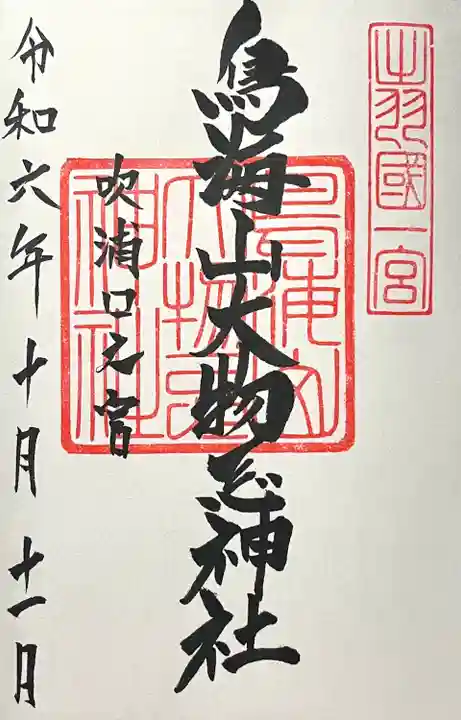 出羽國一宮
鳥海山大物忌神社
鳥海山
大物忌
神社
吹浦口之宮
令和六年十月十一日